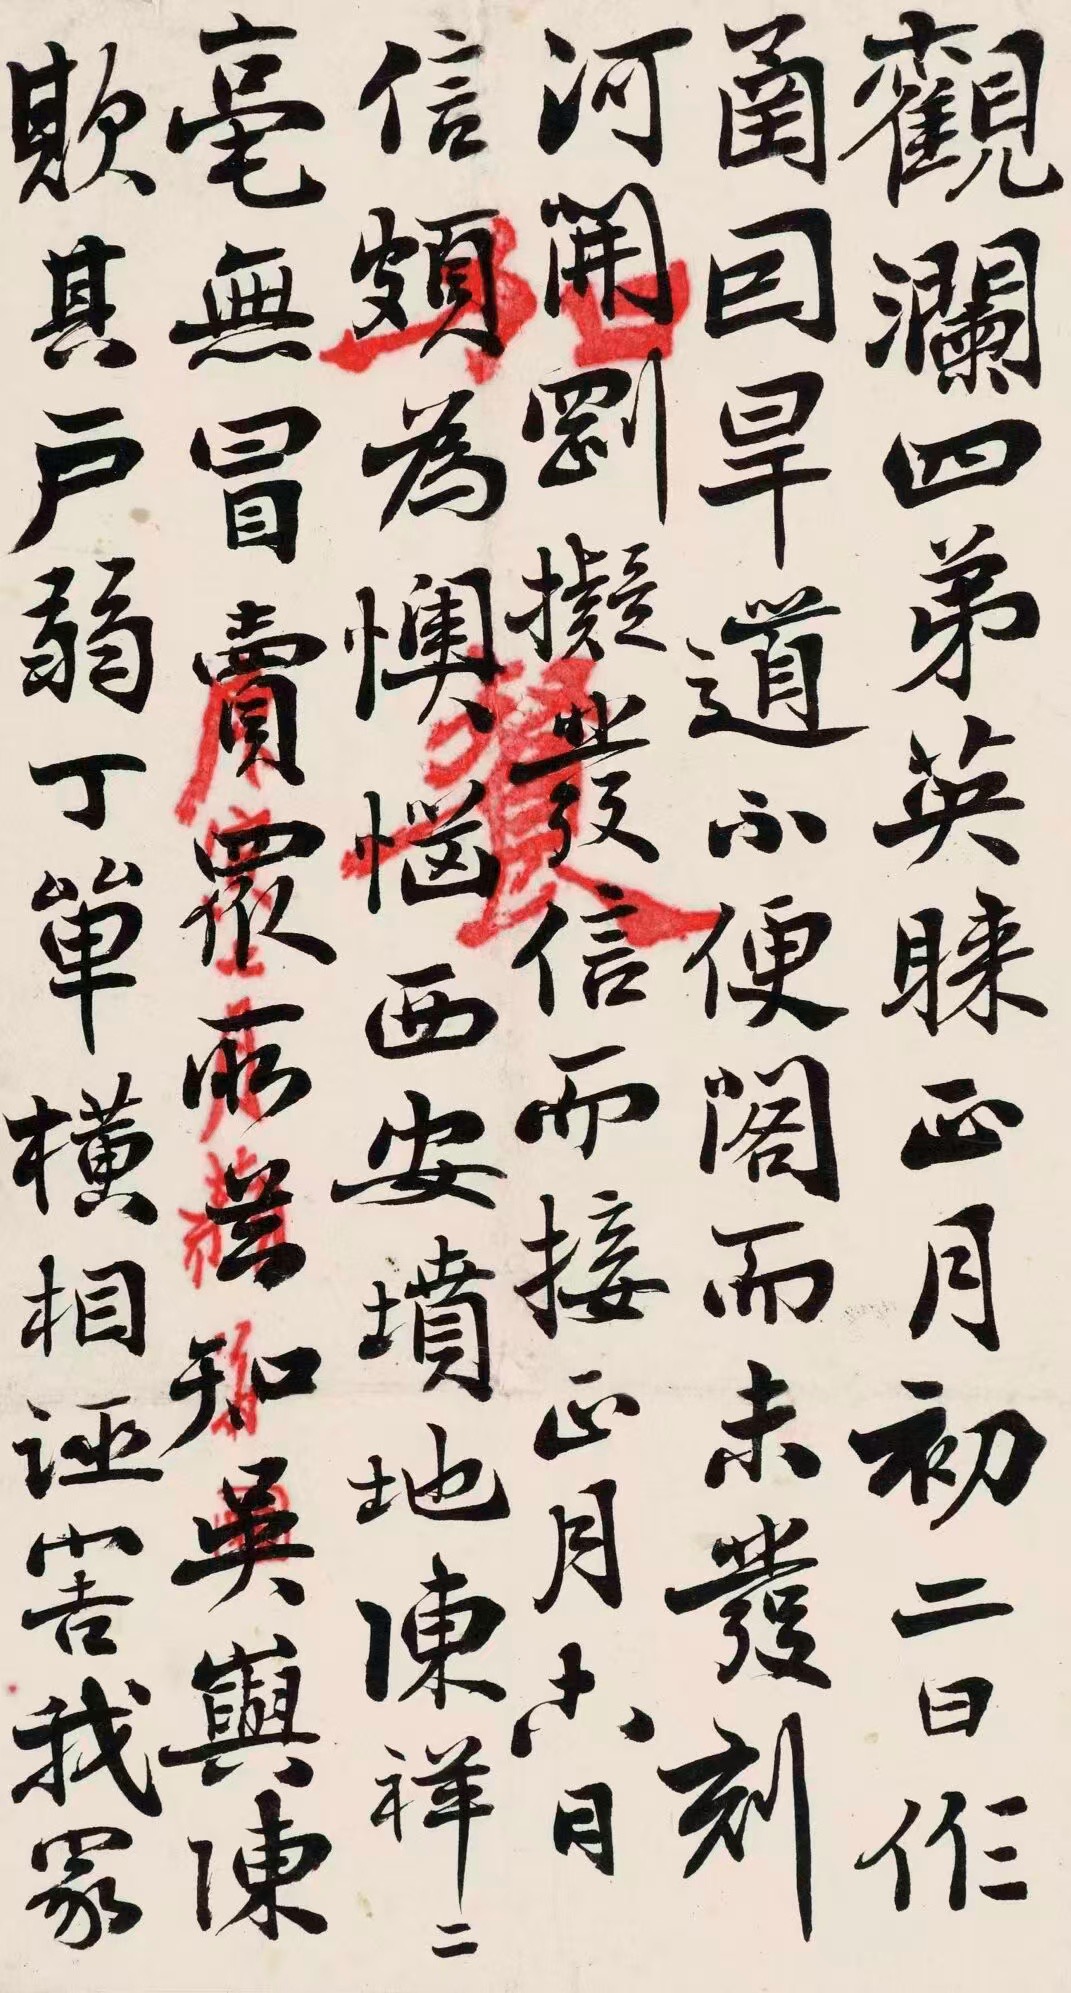 觀瀾四弟英睞正月初二日作
圅因旱道不便閣而未發刻
河開剛擬發信而接正月十六日
信頗為懊惱西安墳地陳祥二
毫無冒賣眾所共知吳與陳
欺其戶弱丁單橫相誣害我家